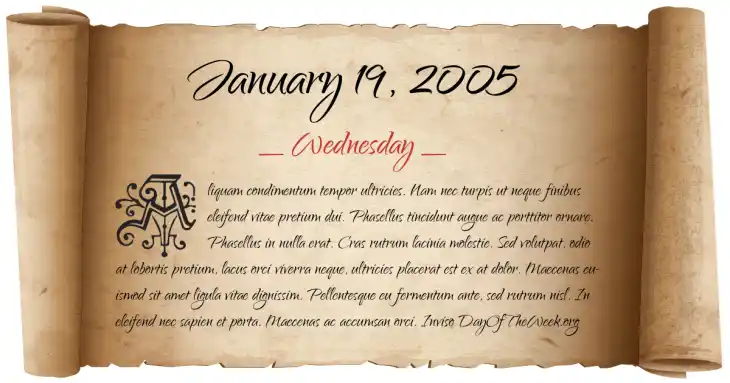 January 19, 2005
_ Wednesday _
Aliquam condimentum tempor ultricies. Nam nec turpis ut neque finibus
eleifend vitae pretium dui. Phasellus tincidunt augue ac porttitor ornare.
Phasellus in nulla erat. Cras rutrum lacinia molestie. Sed volutpat, odio
at lobortis pretium, lacus orci viverra neque, ultricies placerat est ex at dolor. Maecenas eu-
ismod sit amet ligula vitae dignissim. Pellentesque eu fermentum ante, sed rutrum nisl. In
eleifend nec sapien et porta. Maecenas ac accumsan orci. Inviso DayOfTheWeek.org